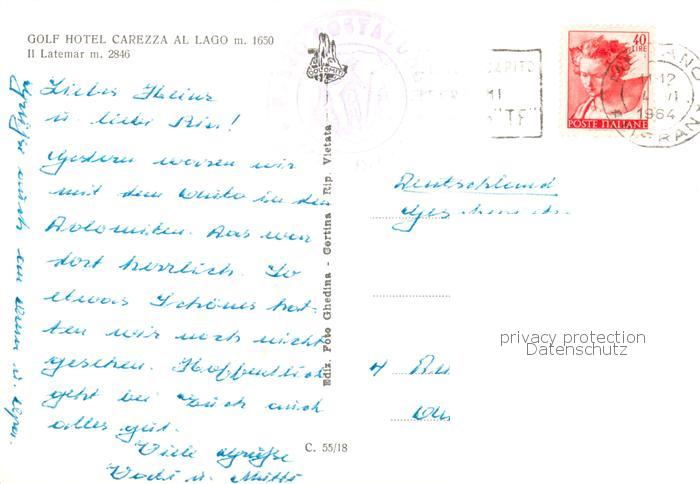 GOLF HOTEL CAREZZA AL LAGO m. 1650
Il Latemar m. 2846
Liebes Heinz
u. liebe Kin!
Gestern waren wir
mit dem Auto in den
Dolomiten. Das war
dort herrlich. So
etwas Schönes hat-
ten wir noch nicht
gesehen. Hoffentlich
geht bei Euch auch
alles gut.
Viele Grüße
Vati u. Mutti
Grüße auch an
C. 55/18
Ediz. Foto Ghedina - Cortina Rip. Vietata
DOLOMITI
40
LIRE
POSTE ITALIANE
1964
Deutschland
privacy protection
Datenschutz